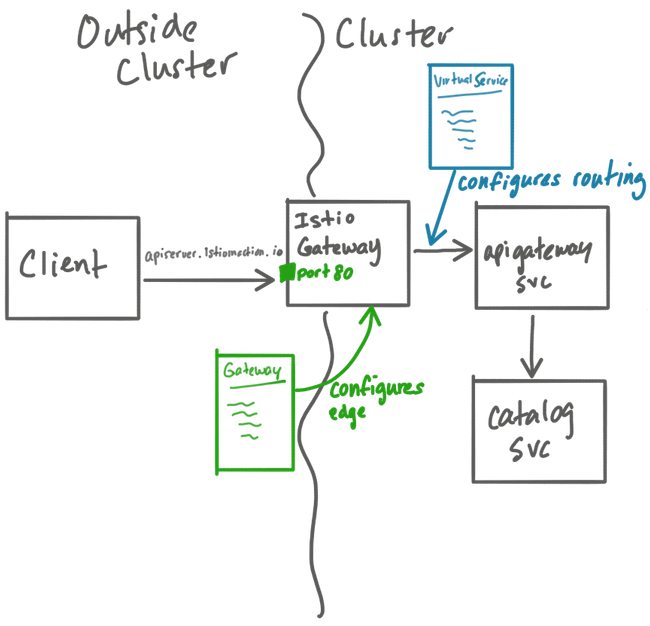 Outside
Cluster
Cluster
Virtual Service
configures routing
Client
apiserver.istioinaction.io
Istio
Gateway
port 80
apigateway
svc
Gateway
configures
edge
catalog
svc